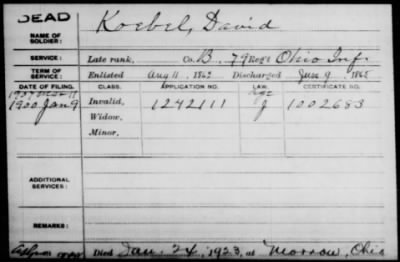 DEAD
Koebel, David
NAME OF
SOLDIER:
SERVICE: Late rank, Co. B, 79 Reg't Ohio Inf.
TERM OF
SERVICE: Enlisted Aug 11, 1862 Discharged June 9, 1865
DATE OF FILING. CLASS. APPLICATION NO. LAW. CERTIFICATE NO.
1900 Jan 9 Invalid, 1242111 J 1002683
Widow,
Minor,
ADDITIONAL
SERVICES:
REMARKS:
Died Jan. 24, 1923, at Morrow, Ohio